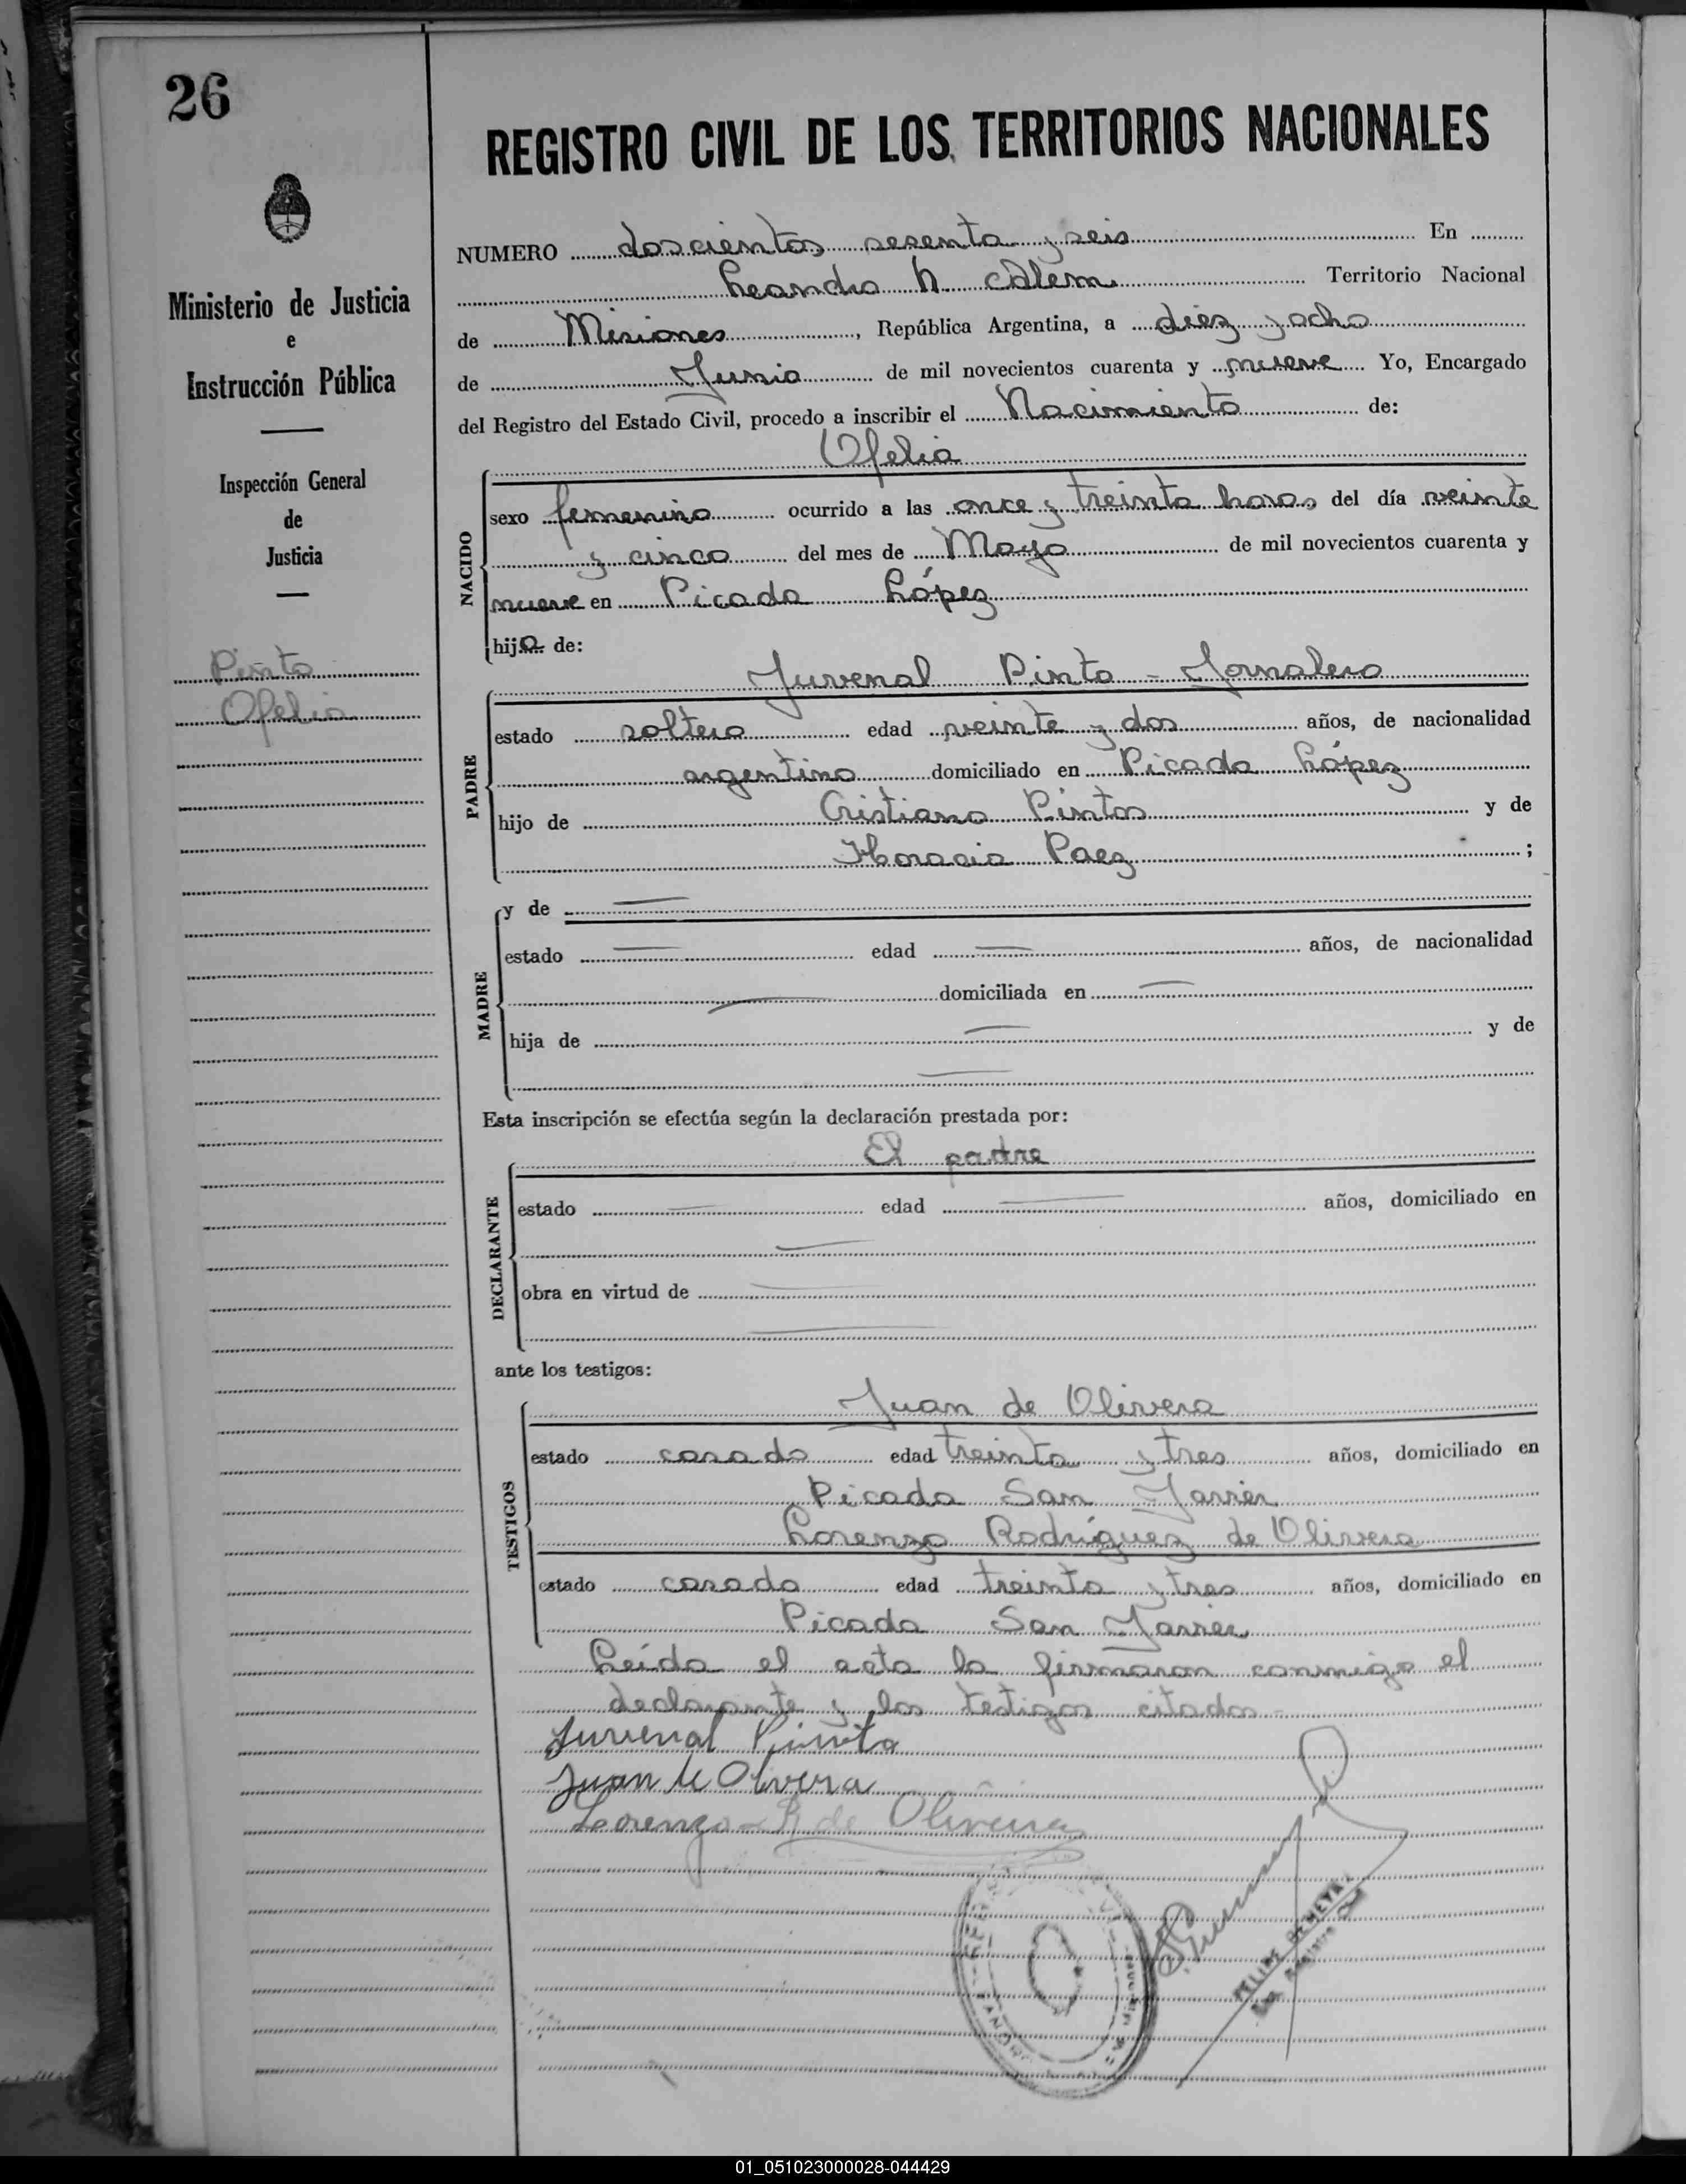 26
REGISTRO CIVIL DE LOS TERRITORIOS NACIONALES
Ministerio de Justicia
e
Instrucción Pública
Inspección General
de
Justicia
Pinto
Ofelia
NUMERO doscientos sesenta y seis En
Leandro N. Alem Territorio Nacional
de Misiones, República Argentina, a diez y ocho
de Junio de mil novecientos cuarenta y nueve Yo, Encargado
del Registro del Estado Civil, procedo a inscribir el Nacimiento de:
NACIDO
Ofelia
sexo femenino ocurrido a las once y treinta horas del día veinte
y cinco del mes de Mayo de mil novecientos cuarenta y
nueve en Picada López
hija de:
PADRE
Juvenal Pinto - Jornalero
estado soltero edad veinte y dos años, de nacionalidad
argentino domiciliado en Picada López
hijo de Cristiano Pintos y de
Horacia Paez ;
MADRE
y de —
estado — edad — años, de nacionalidad
— domiciliada en —
hija de — y de
—
Esta inscripción se efectúa según la declaración prestada por:
DECLARANTE
El padre
estado — edad — años, domiciliado en
—
obra en virtud de —
—
ante los testigos:
TESTIGOS
Juan de Olivera
estado casado edad treinta y tres años, domiciliado en
Picada San Javier
Lorenzo Rodríguez de Olivera
estado casado edad treinta y tres años, domiciliado en
Picada San Javier
Leída el acta la firmaron conmigo el
declarante y los testigos citados -
Juvenal Pinto
Juan de Olivera
Lorenzo R de Oliveira
FELIPE
01_051023000028-044429